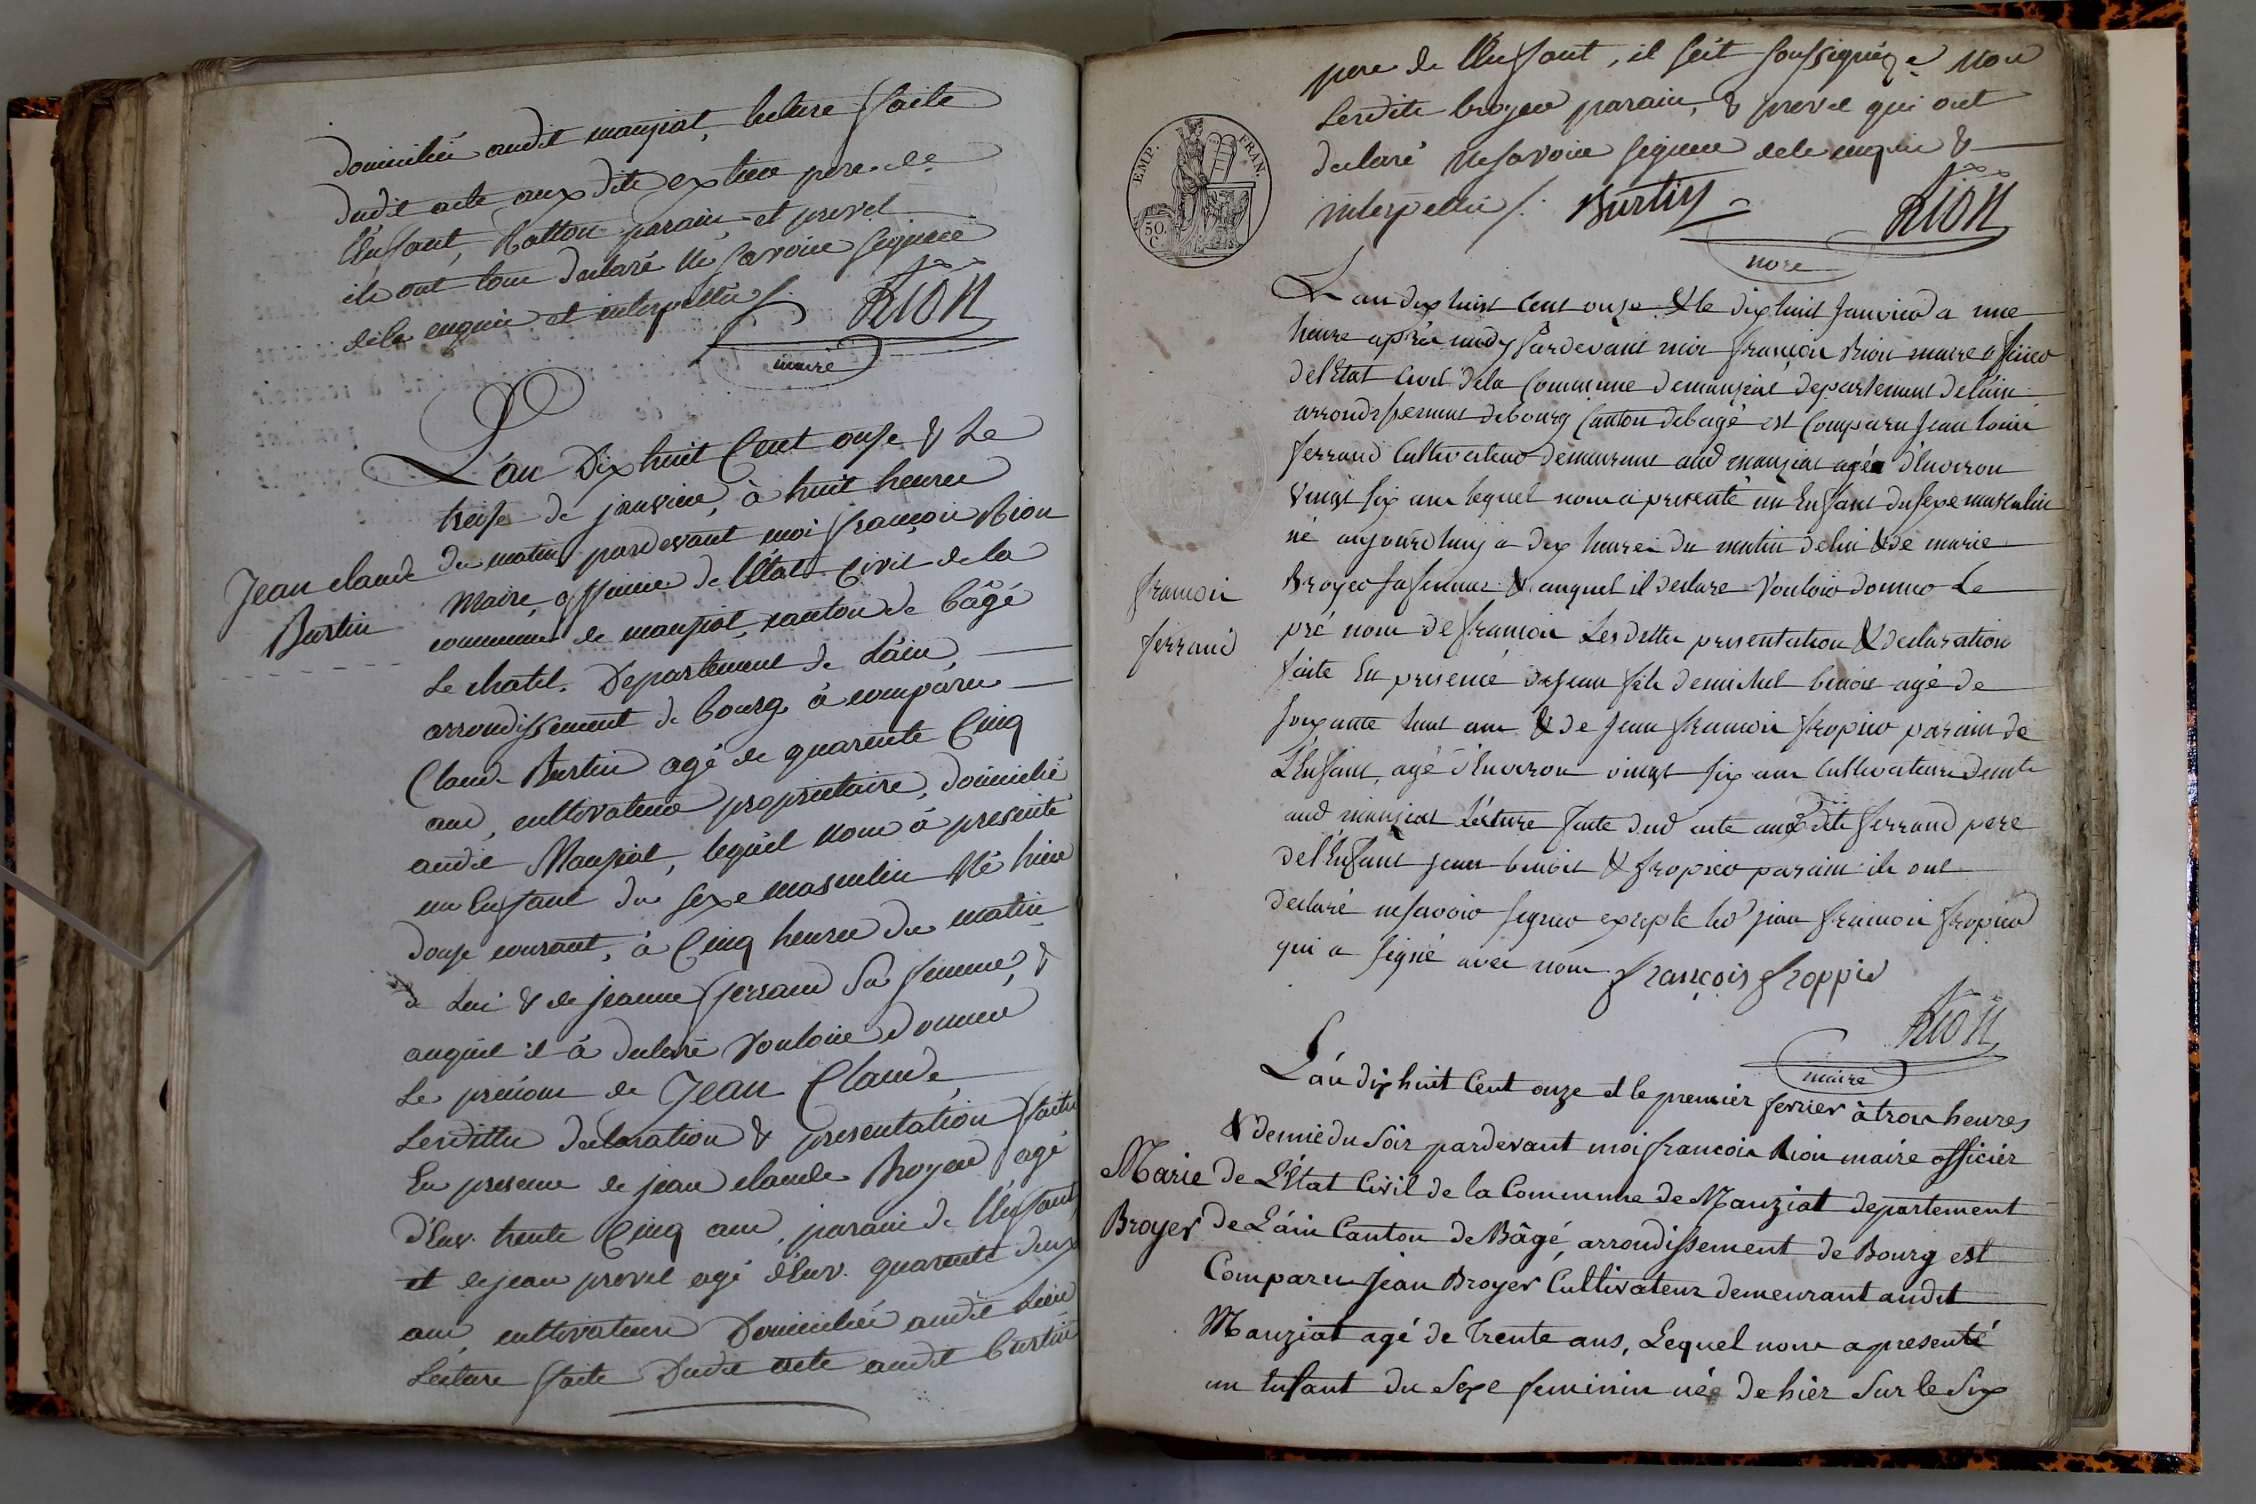 domiciliés audit manziat, lecture faite
dudit acte aux dits extier pere de
l'enfant, Ratton parain, et prevel
ils ont tous declaré ne savoire signere
de ce enquis et interpellés /.
RION
maire
L'an Dix huit Cent onze & le
treise de janvier, à huit heures
du matin pardevant moi françois Rion
Maire, officier de l'Etat Civil de la
commune de manziat, canton de bâgé
Le chatel. Departement de L'ain,
arrondissement de bourg à comparu
Claude Burtin agé de quarente Cinq
ans, cultivateur propriètaire, domicilié
audit Manziat, lequel nous à presenté
un Enfant du sexe masculin Né hier
douze courant, à Cinq heures du matin
de Lui & de jeanne ferrand Sa femme, &
auquel il à declaré Vouloir donner
Le prénom de Jean Claude
Lesdittes declaration & presentation faites
En presence de jean claude Broyer agé
d'Env. trente Cinq ans, parain de l'Enfant,
et de jean prevel agé d'Env. quarente deux
ans, cultivateurs Domiciliés audit Lieu
Lecture faite Dudit acte audit burtin
Jean claude
Burtin
pere de l'Enfant, il s'est soussigné, & Non
Lesdits broyer parain, & prevel qui ont
declaré Ne savoire signere de ce enquis &
interpellés /. Burtin
RION
EMP. FRAN.
50.
C.
Lan dix huit Cent onze & le dix huit Janvier a une
heure après midy Pardevant moi françois Rion maire officier
de l'Etat Civil de la Commune de manziat departement de l'ain
arrondissement de bourg Canton de bagé est Comparu Jean louis
ferrand Cultivateur demeurant aud manziat agé d'Environ
Vingt six ans lequel nous a presenté un Enfant du sexe masculin
né aujourdhuy a dix heures du matin de lui & de marie
Broyer sa femme & auquel il declare Vouloir donner Le
pré nom de françois Les dittes presentation & declaration
faite En presence de jean fils de michel benoit agé de
soixante huit ans & de Jean françois fropier parain de
L'Enfant, agé d'Environ vingt six ans Cultivateurs demts
aud manziat Lécture faite dud acte aux dits ferrand pere
de l'Enfant jean benoit & fropier parain ils ont
declaré ne savoir signer excepte led jean françois fropier
qui a signé avec nous. françois froppié
RION
maire
françois
ferrand
L'an dix huit Cent onze et le premier fevrier à trois heures
& demie du Soir pardevant moi francois Rion maire officier
de L'Etat Civil de la Commune de Manziat departement
de L'ain Canton de Bâgé, arrondissement de Bourg est
Comparu Jean Broyer Cultivateur demeurant audit
Manziat agé de Trente ans, Lequel nous a presenté
un Enfant du Sexe feminin née de hier Sur le Six
Marie
Broyer